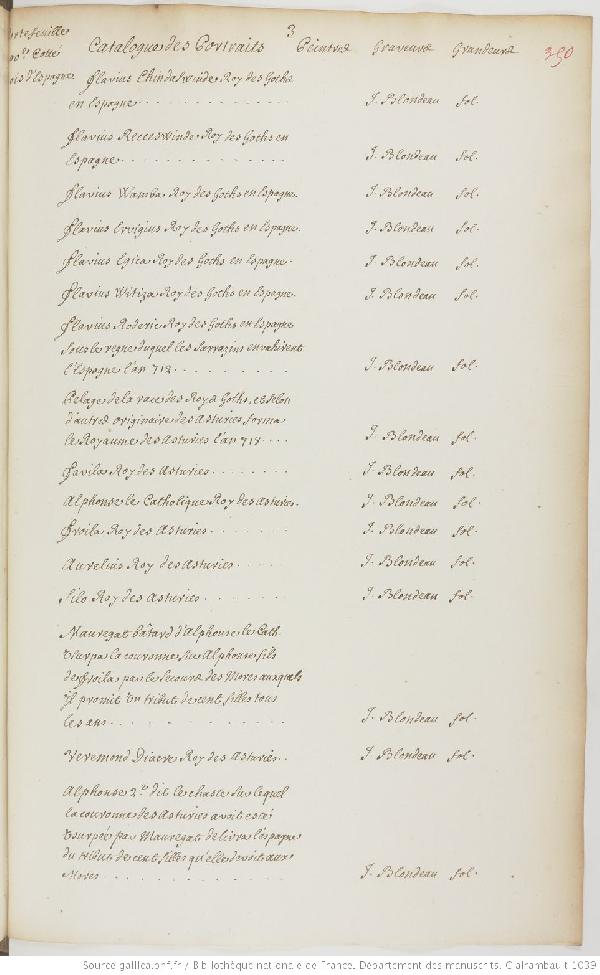 3
Catalogue des Portraits Peintre Graveure Grandeure 350
d'Espagne
Flavius Chindaswinde Roy des Goths
en Espagne . . . . . . . . . . J. Blondeau fol.
Flavius Receswinde Roy des Goths en
Espagne . . . . . . . . . . . J. Blondeau fol.
Flavius Wamba Roy des Goths en Espagne. J. Blondeau fol.
Flavius Ervigius Roy des Goths en Espagne. J. Blondeau fol.
Flavius Egica Roy des Goths en Espagne. J. Blondeau fol.
Flavius Witiza Roy des Goths en Espagne. J. Blondeau fol.
Flavius Roderic Roy des Goths en Espagne
sous le regne duquel les Sarrazins envahirent
l'Espagne l'an 712 . . . . . . . . J. Blondeau fol.
Pelage de la race des Roys Goths, et selon
d'autres originaire des Asturies, forma
le Royaume des Asturies l'an 717 . . . J. Blondeau fol.
Favila Roy des Asturies . . . . . . . J. Blondeau fol.
Alphonse le Catholique Roy des Asturies. J. Blondeau fol.
Froila Roy des Asturies . . . . . . . J. Blondeau fol.
Aurelius Roy des Asturies . . . . . J. Blondeau fol.
Silo Roy des Asturies . . . . . . . J. Blondeau fol.
Mauregat bâtard d'Alphonse le Cath.
Usurpa la couronne sur Alphonse fils
de Froila par le secours des Mores auxquels
Il promit Un tribut de cent filles tous
les ans . . . . . . . . . . . . J. Blondeau fol.
Veremond Diacre Roy des Asturies . . J. Blondeau fol.
Alphonse 2.e dit le chaste sur lequel
la couronne des Asturies avoit esté
Usurpée par Mauregat delivra l'espagne
du tribut de cent filles qu'elle devoit aux
Mores . . . . . . . . . . . . . J. Blondeau fol.
Source gallica.bnf.fr / Bibliothèque nationale de France. Département des manuscrits. Clairambault 1039